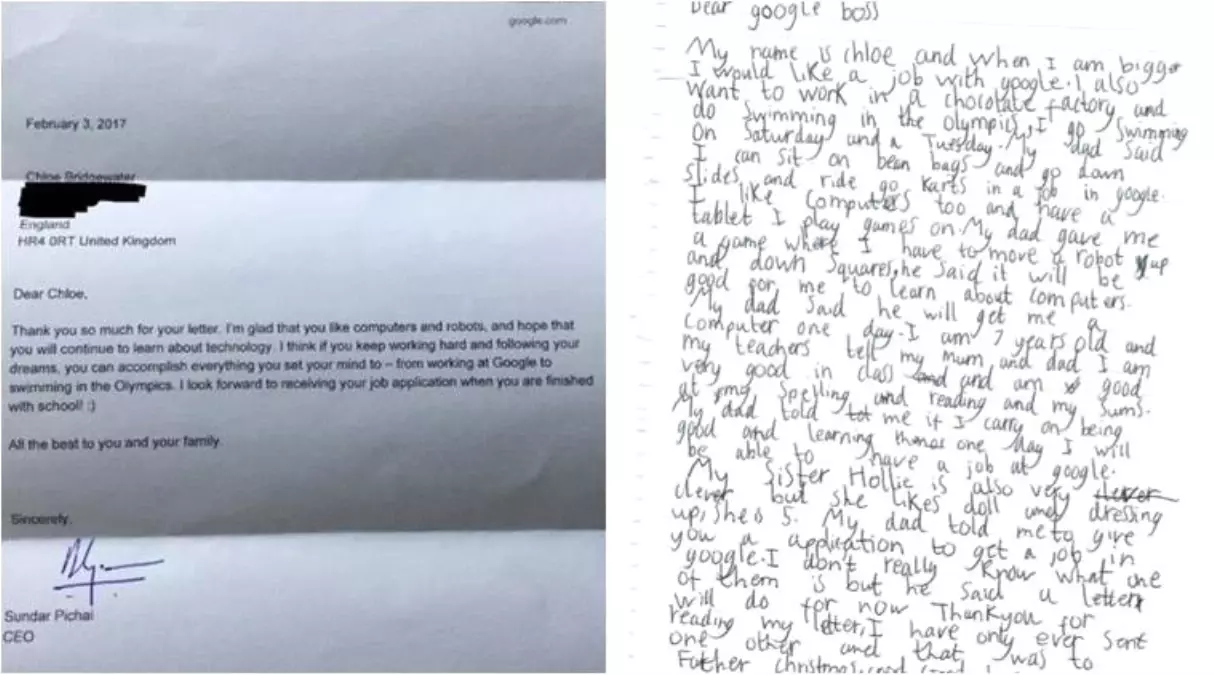 google.com
February 3, 2017
Chloe Bridgewater
England
HR4 0RT United Kingdom
Dear Chloe,
Thank you so much for your letter. I'm glad that you like computers and robots, and hope that
you will continue to learn about technology. I think if you keep working hard and following your
dreams, you can accomplish everything you set your mind to – from working at Google to
swimming in the Olympics. I look forward to receiving your job application when you are finished
with school! :)
All the best to you and your family.
Sincerely,
Sundar Pichai
CEO
Dear google boss
My name is chloe and when I am bigger
I would like a job with google. I also
want to work in a chocolate factory and
do swimming in the olympics, I go swimming
on Saturday and a Tuesday. My dad said
I can sit on bean bags and go down
slides and ride go karts in a job in google.
I like computers too and have a
tablet I play games on. My dad gave me
a game where I have to move a robot up
and down squares, he said it will be
good for me to learn about computers.
My dad said he will get me a
computer one day. I am 7 years old and
my teachers tell my mum and dad I am
very good in class and and am good
at my spelling and reading and my sums.
My dad told tot me if I carry on being
good and learning things one day I will
be able to have a job at google.
My sister Hollie is also very clever
clever but she likes doll and dressing
up, shes 5. My dad told me to give
you a application to get a job in
google. I don't really know what one
of them is but he said a letter
will do for now. Thankyou for
reading my letter, I have only ever sent
one other and that was to
Father christmas.